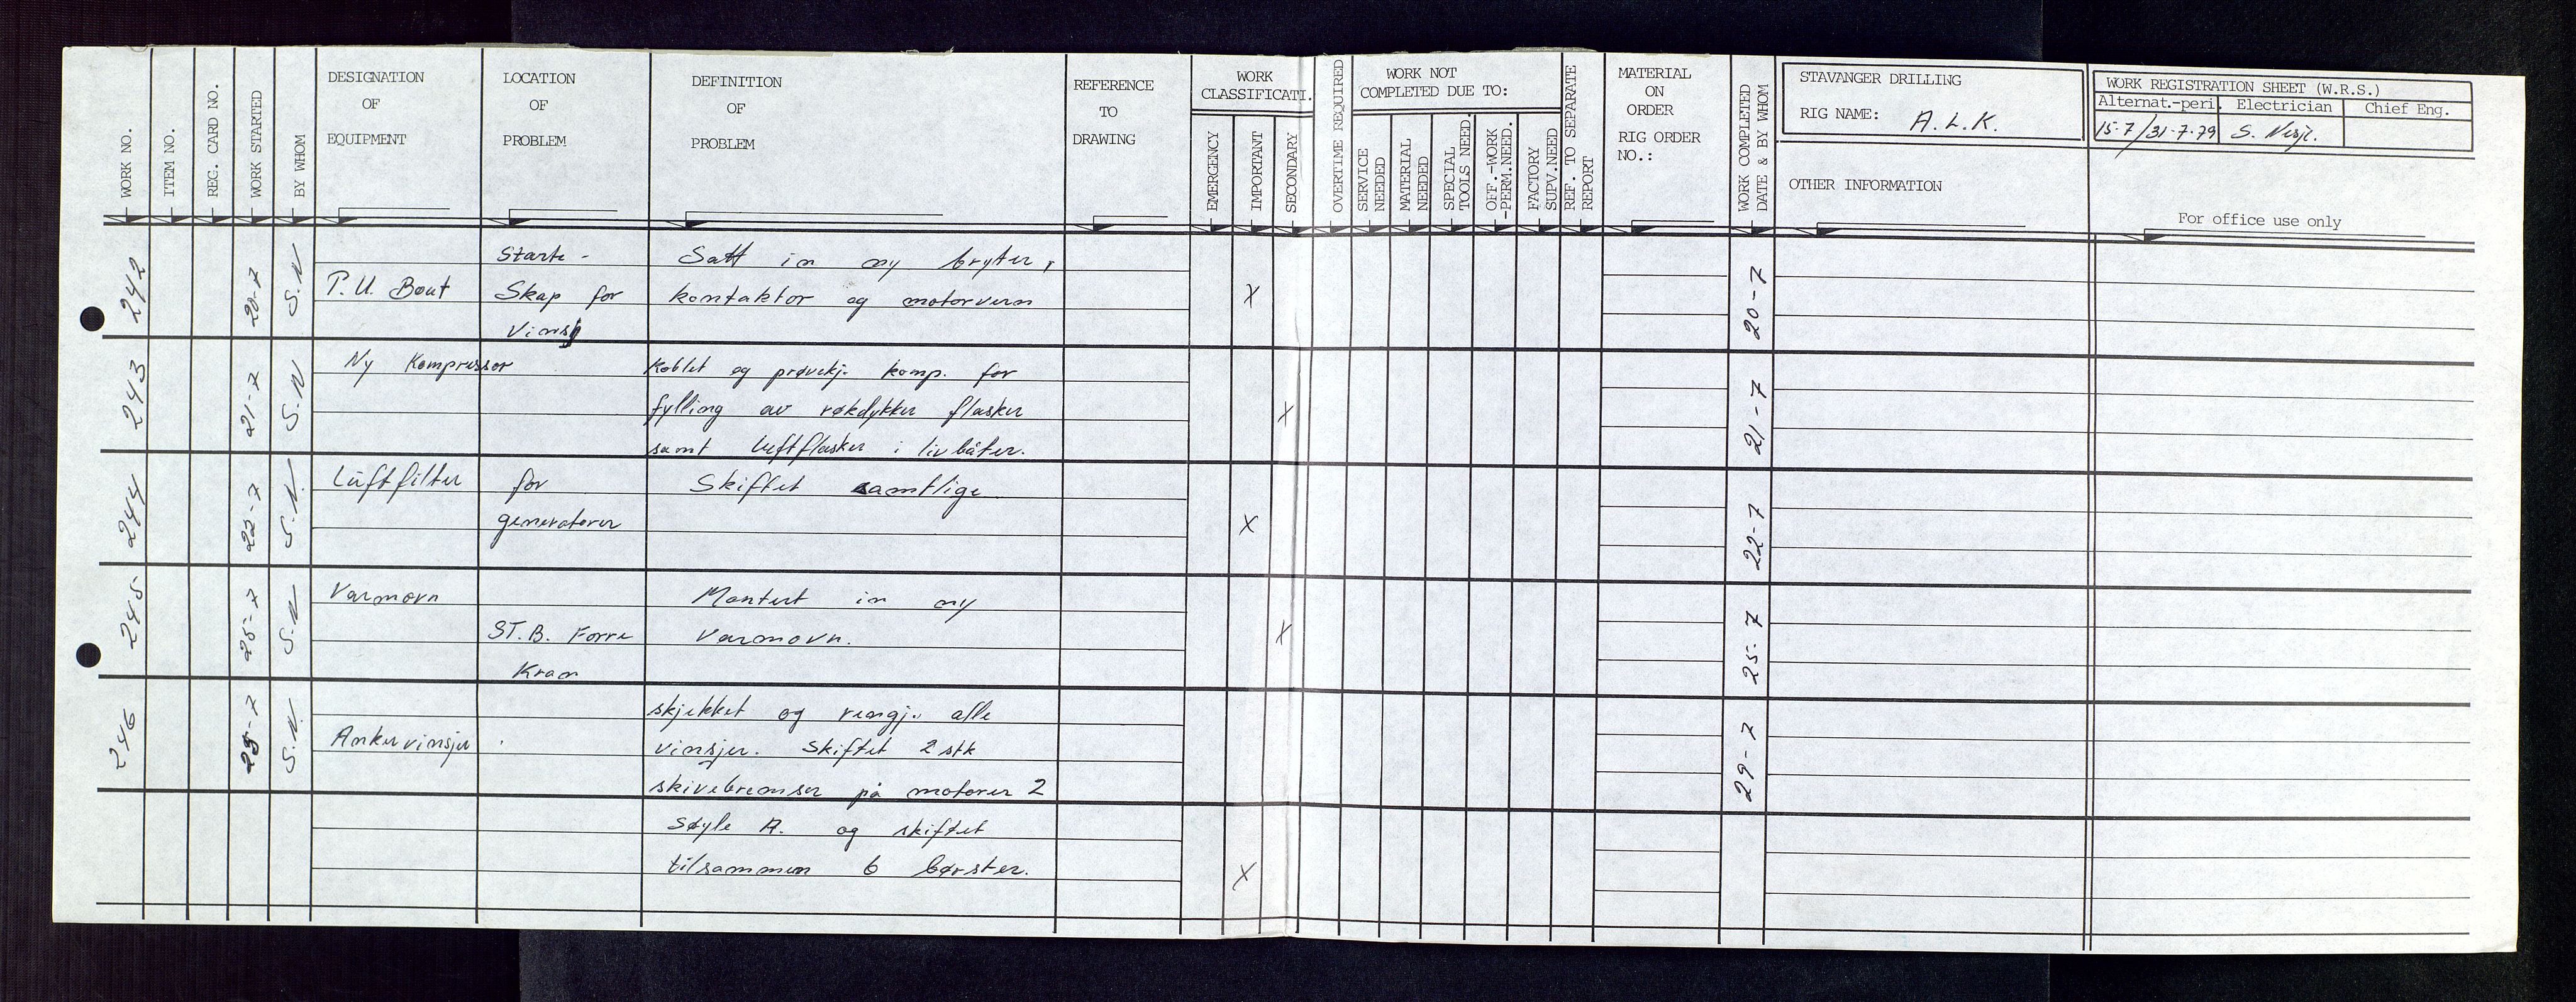 WORK NO.
ITEM NO.
REG. CARD NO.
WORK STARTED
BY WHOM
DESIGNATION
OF
EQUIPMENT
LOCATION
OF
PROBLEM
DEFINITION
OF
PROBLEM
REFERENCE
TO
DRAWING
WORK
CLASSIFICATI.
EMERGENCY
IMPORTANT
SECONDARY
OVERTIME REQUIRED
WORK NOT
COMPLETED DUE TO:
SERVICE
NEEDED
MATERIAL
NEEDED
SPECIAL
TOOLS NEED.
OFF.-WORK
-PERM.NEED.
FACTORY
SUPV.NEED
REF. TO SEPARATE
REPORT
MATERIAL
ON
ORDER
RIG ORDER
NO.:
WORK COMPLETED
DATE & BY WHOM
STAVANGER DRILLING
RIG NAME: A.L.K.
OTHER INFORMATION
WORK REGISTRATION SHEET (W.R.S.)
Alternat.-peri. Electrician Chief Eng.
15-7/31-7-79 S.
For office use only
242
20-7
S.N
P.U. Bout
Starte -
Skap for
Vinsj
Satt in ny bryter,
kontaktor og motorvern
X
20-7
243
21-7
S.N
Ny Kompressor
Koblet og prøvekj. komp. for
fylling av røkdykker flasker
samt luftflasker i livbåter.
X
21-7
244
22-7
S.N.
Luftfilter
for
generatorer
Skiftet samtlige
X
22-7
245
25-7
S.N
Varmovn
ST.B. Forre
Kran
Montert in ny
Varmovn.
X
25-7
246
29-7
S.N.
Ankervinsjer
skjekket og rengj. alle
vinsjer. Skiftet 2 stk
skivebremser på motorer 2
Søyle A. og skiftet
tilsammen 6 børster.
X
29-7